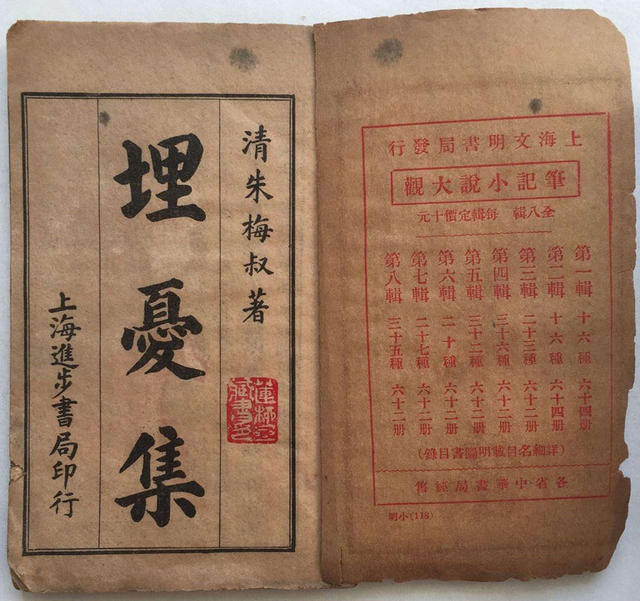 上海文明書局發行
筆記小說大觀
全八輯 每輯定價十元
第一輯 十六種 六十四册
第二輯 十六種 六十四册
第三輯 二十三種 六十二册
第四輯 三十六種 六十二册
第五輯 三十二種 六十二册
第六輯 二十種 六十二册
第七輯 二十七種 六十二册
第八輯 三十五種 六十二册
(詳細名目載明圖書目錄)
各省中華書局經售
明小(118)
清朱梅叔著
埋憂集
上海進步書局印行